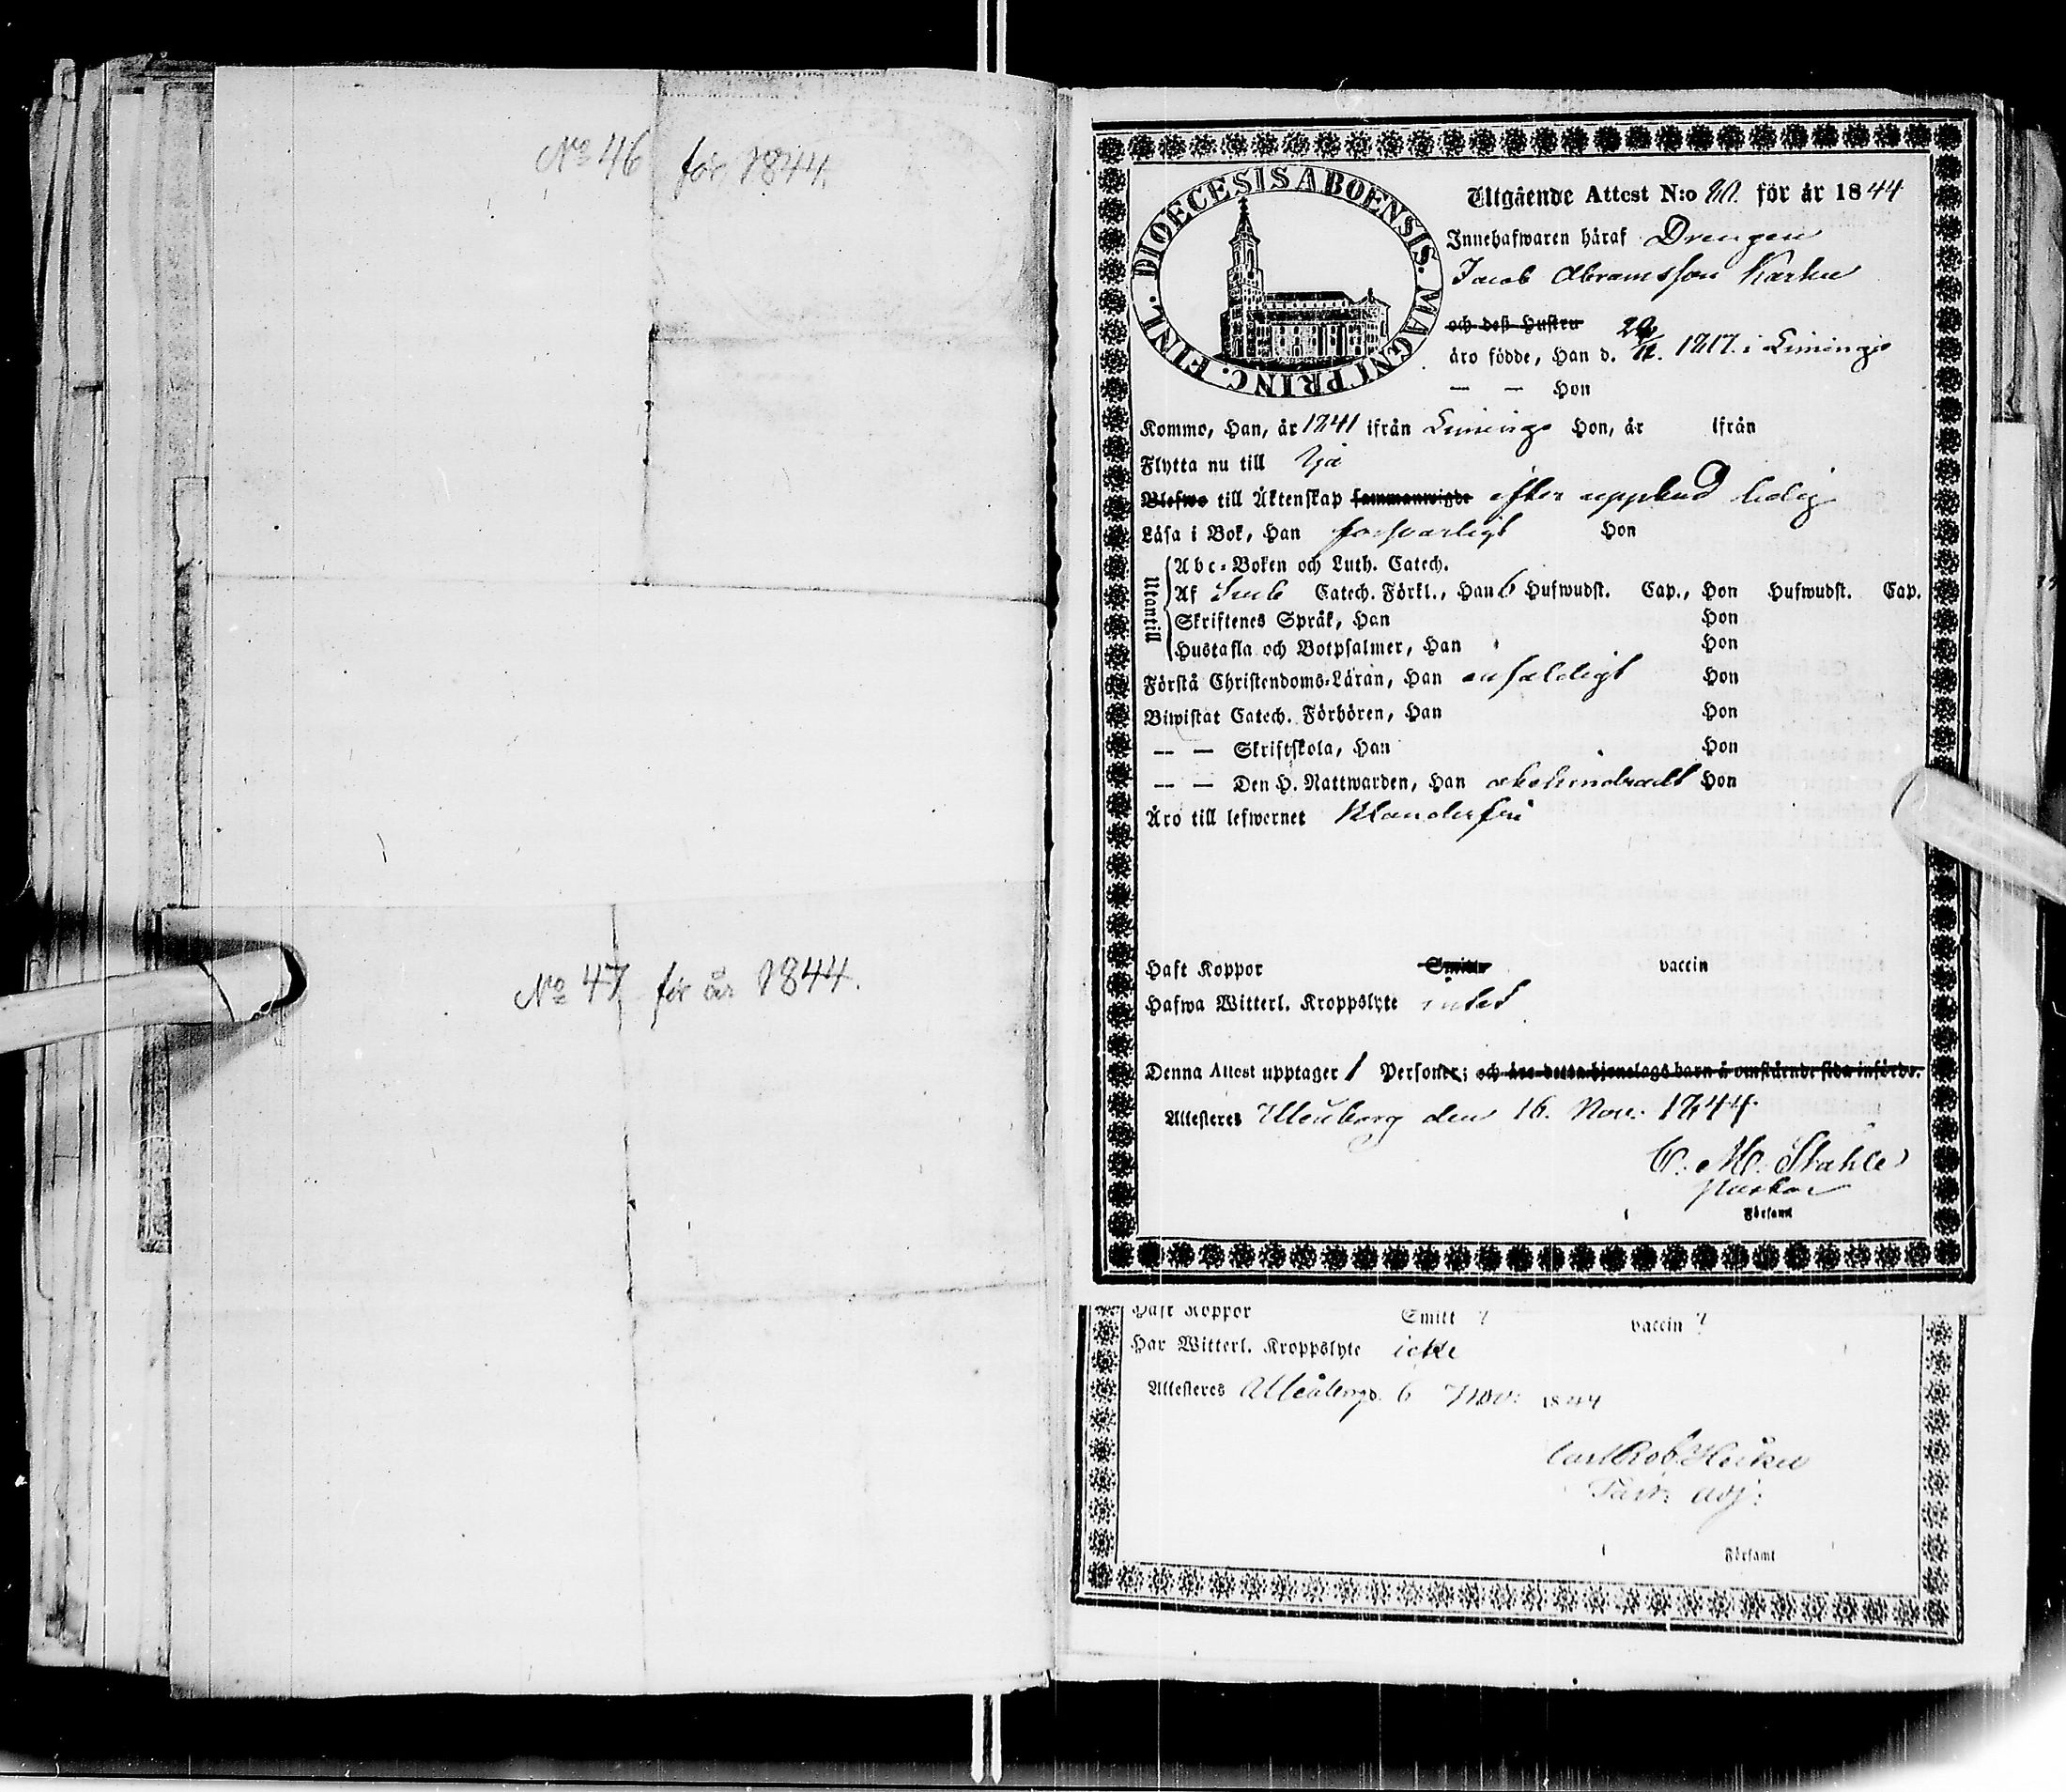 No 46 för 1844.
No 47 för år 1844.
DIOECESIS ABOENSIS. MAGNI PRINC. FINL.
Utgående Attest N:o för år 1844
Innehafwaren häraf Drengen
Jacob Abramsson Karhu
och deß Hustru
äro födde, Han d. 1817. i Limingo
— — Hon
Kommo, Han, år 1841 ifrån Limingo Hon, år ifrån
Flytta nu till Ijo
Blefwo till Äktenskap sammanwigde efter uppbud ledig
Läsa i Bok, Han försvarligt Hon
Utantill
Abc-Boken och Luth. Catech.
Af Catech. Förkl., Han 6 Hufwudst. Cap., Hon Hufwudst. Cap.
Skriftenes Språk, Han Hon
Hustafla och Botpsalmer, Han Hon
Förstå Christendoms-Läran, Han enfaldigt Hon
Biwistat Catech. Förhören, Han Hon
— — Skriftskola, Han Hon
— — Den H. Nattwarden, Han obehindradt Hon
Äro till lefwernet klanderfri
Haft Koppor Smitt vaccin
Hafwa Witterl. Kroppslyte intet
Denna Attest upptager 1 Personer; och äro dessa hjonelags barn å omstående sida införde.
Attesteras Uleåborg den 16. Nov. 1844.
C. M. Ståhle
Pastor
Församl
Haft Koppor Smitt ? vaccin ?
Har Witterl. Kroppslyte icke
Attesteres Uleåborg d. 6 Nov: 1844
Carl Rob. Heikel
Past: adj:
Församl